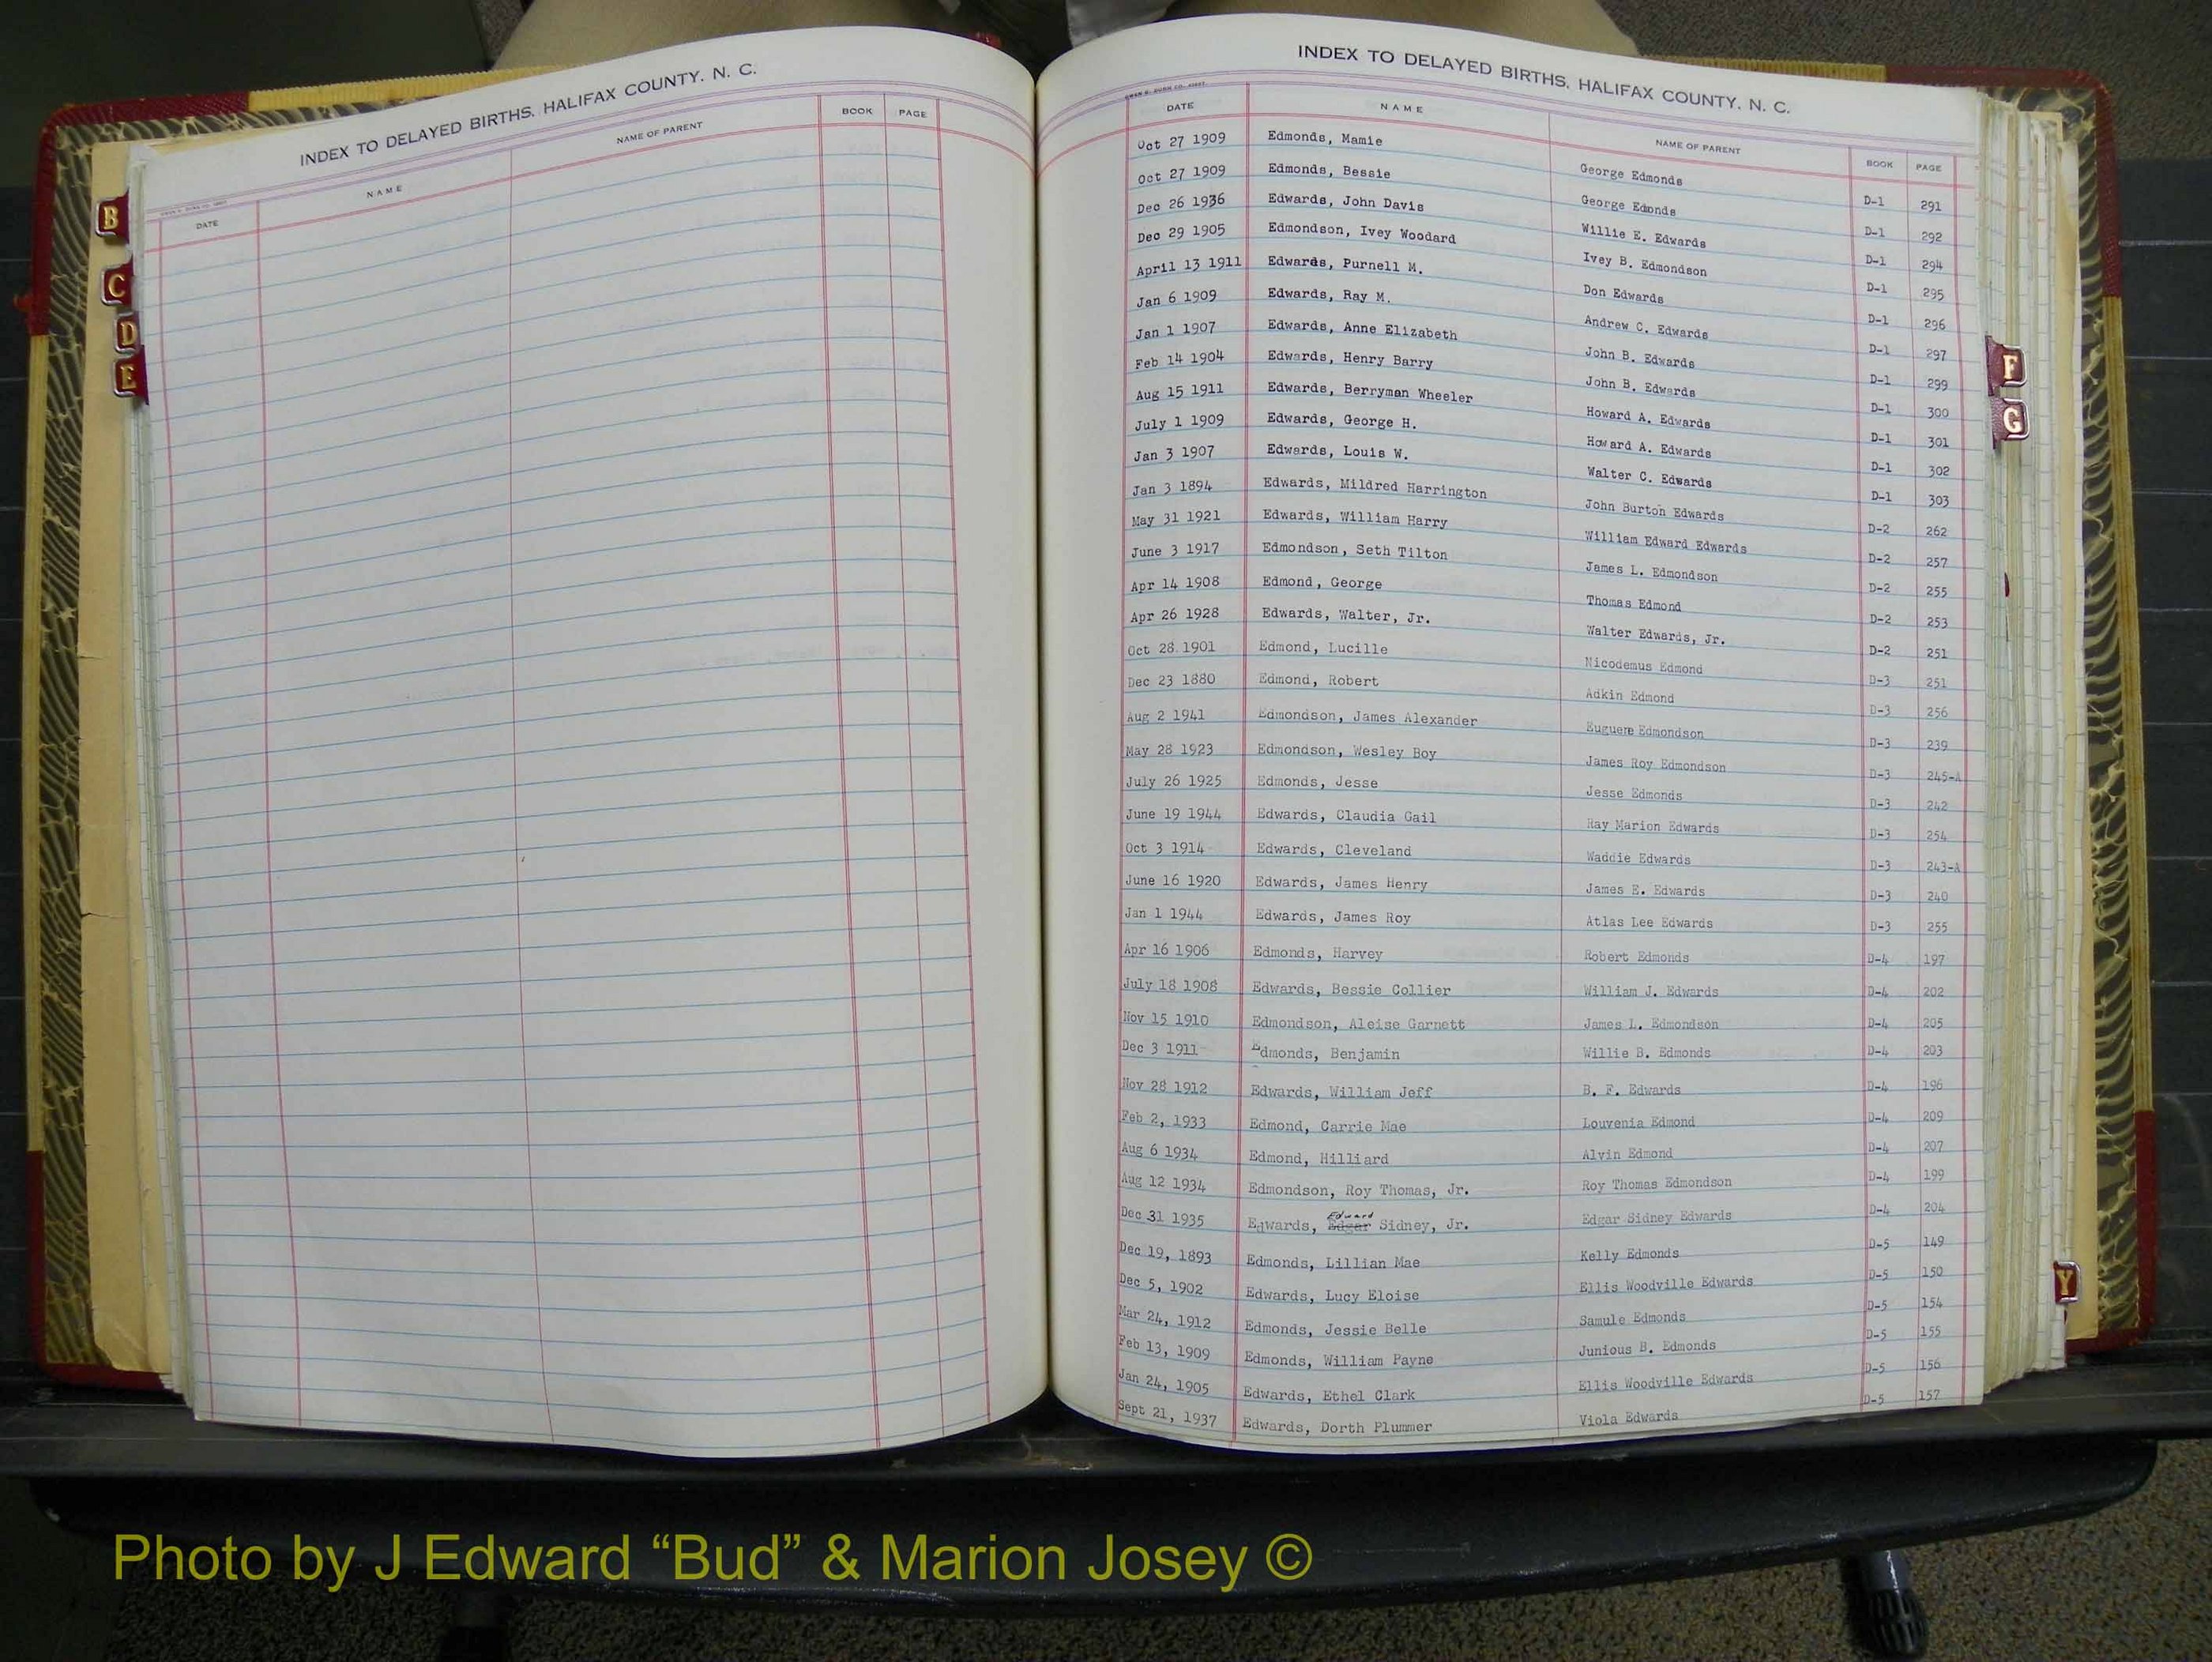 INDEX TO DELAYED BIRTHS, HALIFAX COUNTY, N. C.
DATE NAME NAME OF PARENT BOOK PAGE
B
C
D
E
INDEX TO DELAYED BIRTHS, HALIFAX COUNTY, N. C.
DATE NAME NAME OF PARENT BOOK PAGE
Oct 27 1909 Edmonds, Mamie George Edmonds D-1 291
Oct 27 1909 Edmonds, Bessie George Edmonds D-1 292
Dec 26 1936 Edwards, John Davis Willie E. Edwards D-1 294
Dec 29 1905 Edmondson, Ivey Woodard Ivey B. Edmondson D-1 295
April 13 1911 Edwards, Purnell M. Don Edwards D-1 296
Jan 6 1909 Edwards, Ray M. Andrew C. Edwards D-1 297
Jan 1 1907 Edwards, Anne Elizabeth John B. Edwards D-1 299
Feb 14 1904 Edwards, Henry Barry John B. Edwards D-1 300
Aug 15 1911 Edwards, Berryman Wheeler Howard A. Edwards D-1 301
July 1 1909 Edwards, George H. Howard A. Edwards D-1 302
Jan 3 1907 Edwards, Louis W. Walter C. Edwards D-1 303
Jan 3 1894 Edwards, Mildred Harrington John Burton Edwards D-2 262
May 31 1921 Edwards, William Harry William Edward Edwards D-2 257
June 3 1917 Edmondson, Seth Tilton James L. Edmondson D-2 255
Apr 14 1908 Edmond, George Thomas Edmond D-2 253
Apr 26 1928 Edwards, Walter, Jr. Walter Edwards, Jr. D-2 251
Oct 28 1901 Edmond, Lucille Nicodemus Edmond D-3 251
Dec 23 1880 Edmond, Robert Adkin Edmond D-3 256
Aug 2 1941 Edmondson, James Alexander Euguene Edmondson D-3 239
May 28 1923 Edmondson, Wesley Boy James Roy Edmondson D-3 245-A
July 26 1925 Edmonds, Jesse Jesse Edmonds D-3 242
June 19 1944 Edwards, Claudia Gail Ray Marion Edwards D-3 254
Oct 3 1914 Edwards, Cleveland Waddie Edwards D-3 243-A
June 16 1920 Edwards, James Henry James E. Edwards D-3 240
Jan 1 1944 Edwards, James Roy Atlas Lee Edwards D-3 255
Apr 16 1906 Edmonds, Harvey Robert Edmonds D-4 197
July 18 1908 Edwards, Bessie Collier William J. Edwards D-4 202
Nov 15 1910 Edmondson, Aleise Garnett James L. Edmondson D-4 205
Dec 3 1911 Edmonds, Benjamin Willie B. Edmonds D-4 203
Nov 28 1912 Edwards, William Jeff B. F. Edwards D-4 196
Feb 2, 1933 Edmond, Carrie Mae Louvenia Edmond D-4 209
Aug 6 1934 Edmond, Hilliard Alvin Edmond D-4 207
Aug 12 1934 Edmondson, Roy Thomas, Jr. Roy Thomas Edmondson D-4 199
Edward
Dec 31 1935 Edwards, Edgar Sidney, Jr. Edgar Sidney Edwards D-4 204
Dec 19, 1893 Edmonds, Lillian Mae Kelly Edmonds D-5 149
Dec 5, 1902 Edwards, Lucy Eloise Ellis Woodville Edwards D-5 150
Mar 24, 1912 Edmonds, Jessie Belle Samule Edmonds D-5 154
Feb 13, 1909 Edmonds, William Payne Junious B. Edmonds D-5 155
Jan 24, 1905 Edwards, Ethel Clark Ellis Woodville Edwards D-5 156
Sept 21, 1937 Edwards, Dorth Plummer Viola Edwards D-5 157
F
G
Y
Photo by J Edward “Bud” & Marion Josey ©